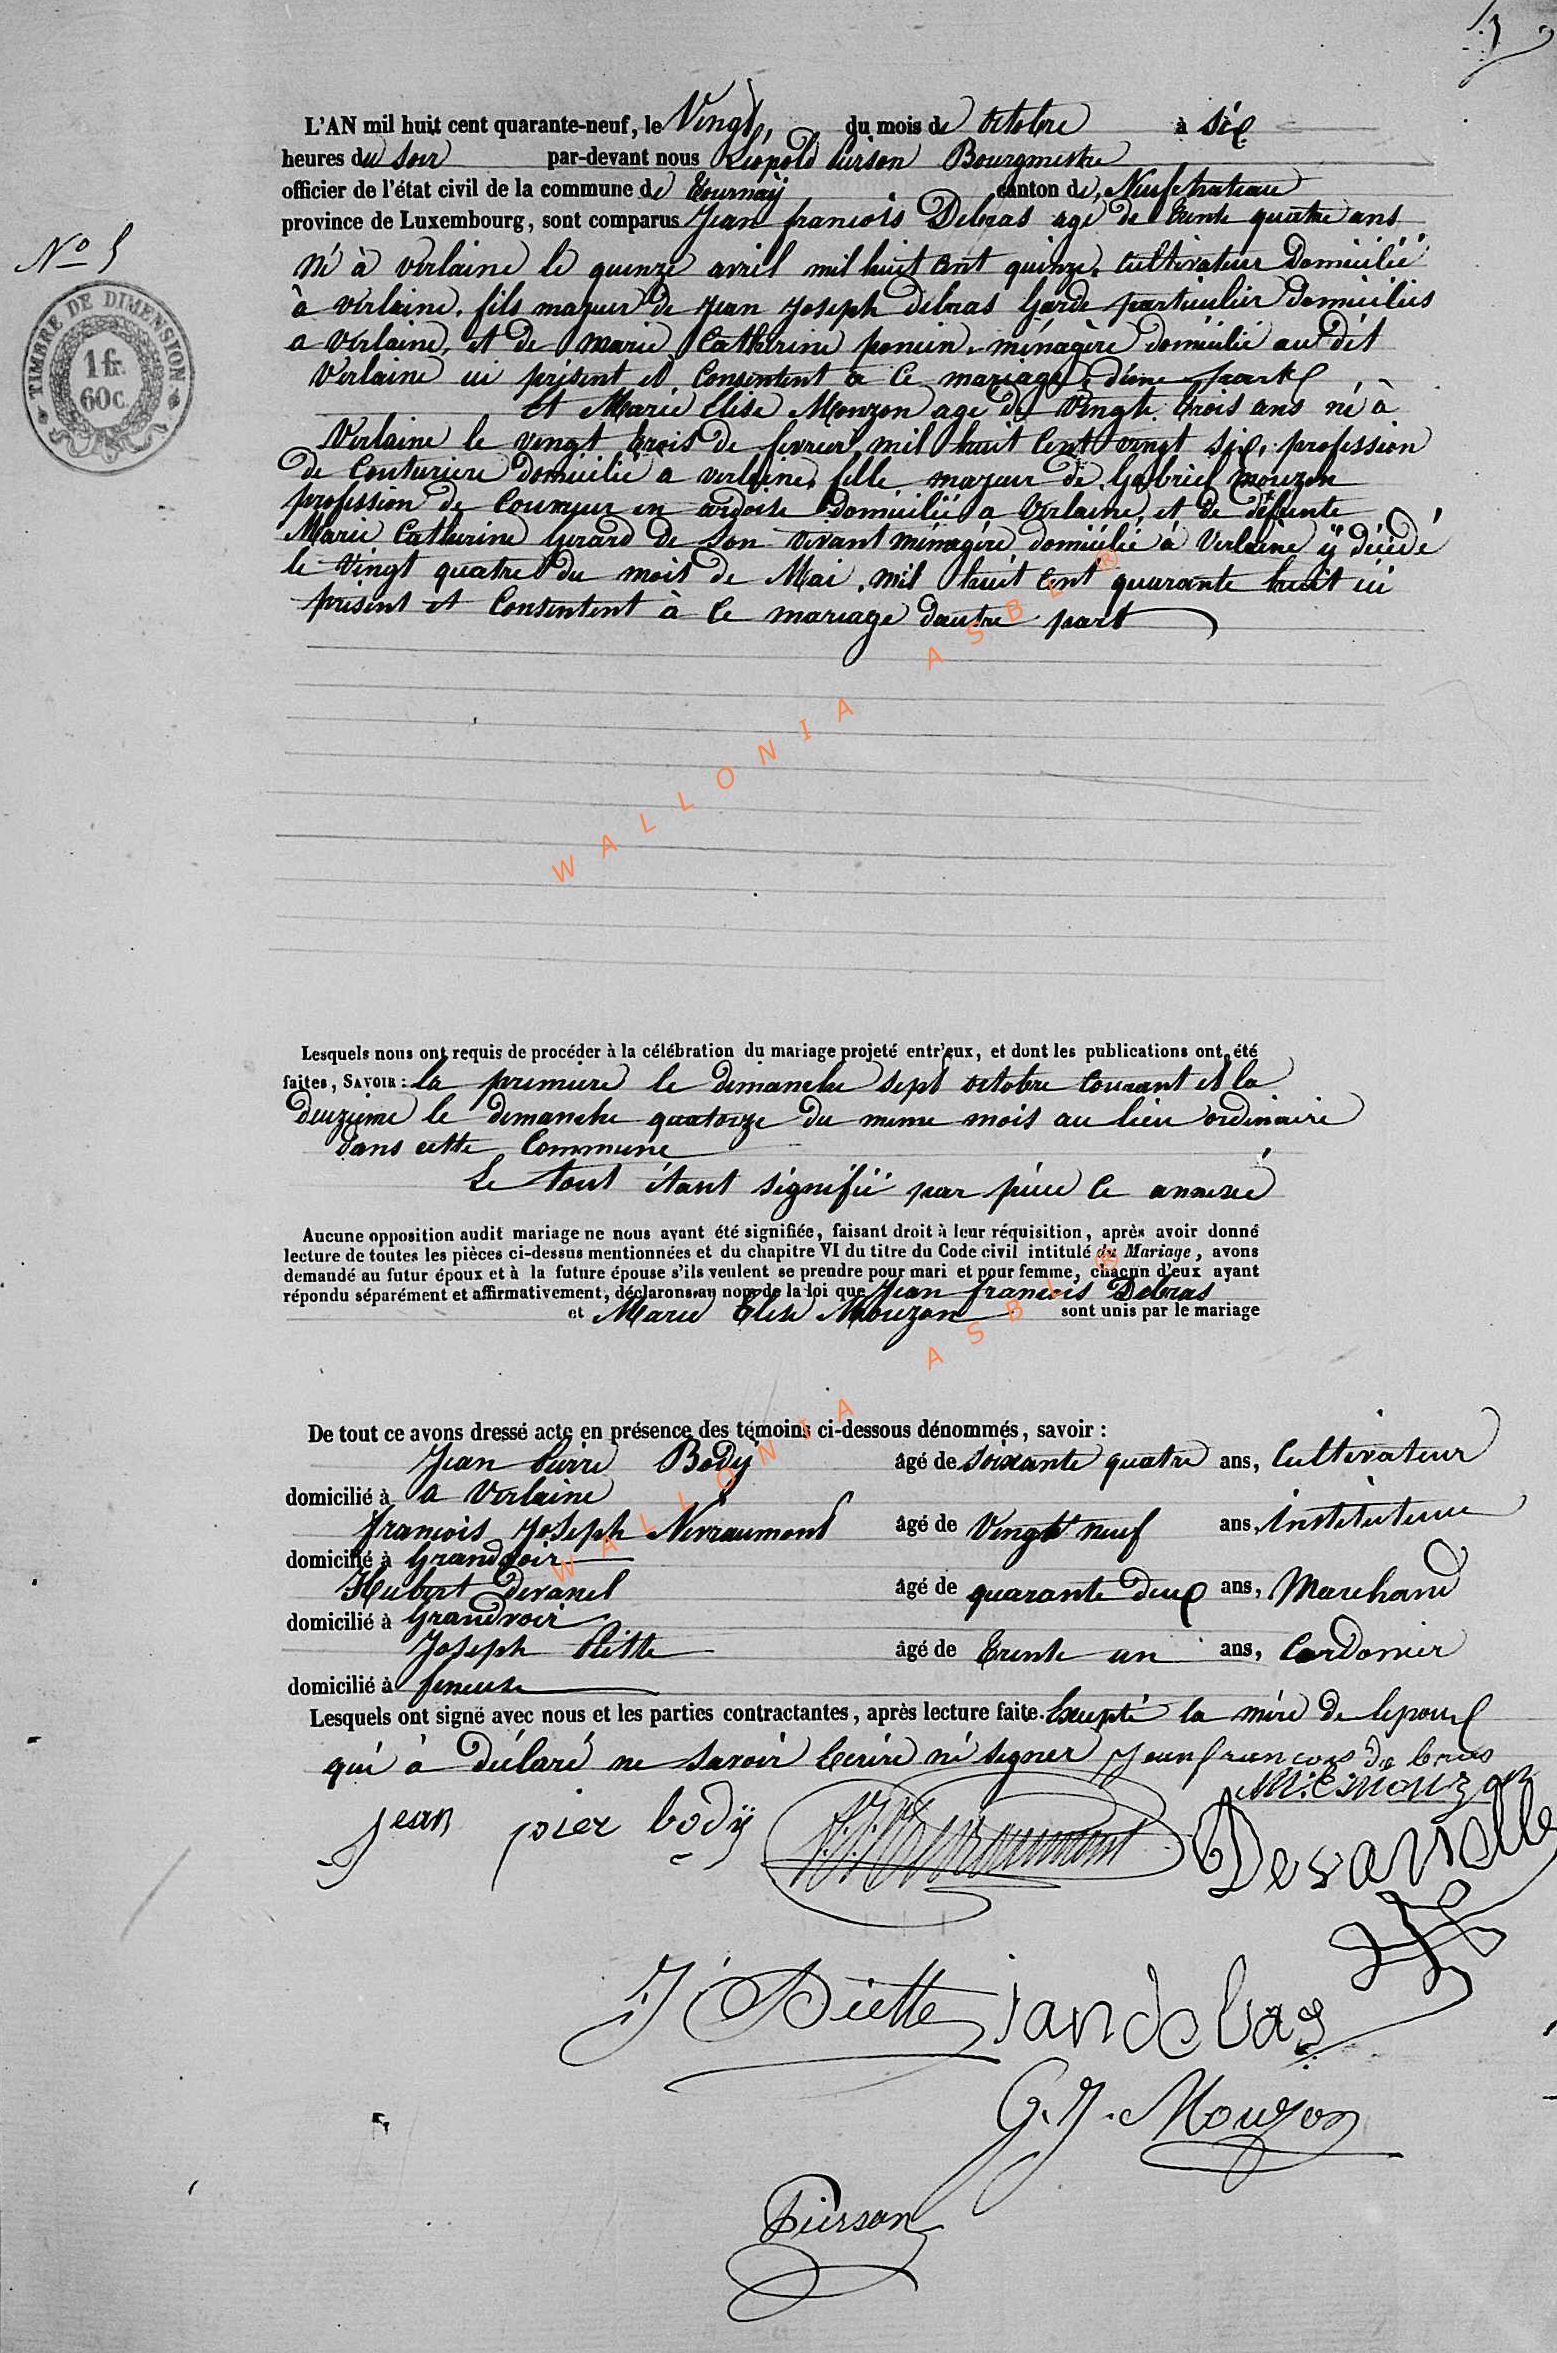 L'AN mil huit cent quarante-neuf, le Vingt, du mois de Octobre à six
heures du soir par-devant nous Léopold Pierson Bourgmestre
officier de l'état civil de la commune de Tournay canton de, Neufchateau
province de Luxembourg, sont comparus Jean francois Debras agé de trente quatre ans
né à verlaine le quinze avril mil huit cent quinze. cultivateur Domicilié
à verlaine. fils majeur de jean joseph debras Garde particulier domiciliés
a verlaine, et de marie Catherine poncin. ménagère domicilié au dit
Verlaine ici présent et Consentent a ce mariage, d'une part
Et Marie Elise Mouzon age de Vingt trois ans né à
Verlaine le vingt trois de fevrier mil huit Cent vingt six, profession
de Couturiere domicilié a verlaine, fille majeur de Gabriel mouzon
profession de Couvreur en ardoise domicilié a Verlaine, et de défunte
Marie Catherine Gerard de son vivant ménagère domicilié à Verlaine ÿ décédé
le Vingt quatre du mois de Mai, mil huit Cent quarante huit ici
present et Consentent à ce mariage dautre part
N° 5
TIMBRE DE DIMENSION
1 fr.
60c
WALLONIA ASBL ®
Lesquels nous ont requis de procéder à la célébration du mariage projeté entr'eux, et dont les publications ont été
faites, SAVOIR : la premiere le dimanche sept octobre Courant et la
deuzieme le dimanche quatorze du meme mois au lieu ordinaire
dans cette Commune
Le tout étant signifié par piece ce annexé
Aucune opposition audit mariage ne nous ayant été signifiée, faisant droit à leur réquisition, après avoir donné
lecture de toutes les pièces ci-dessus mentionnées et du chapitre VI du titre du Code civil intitulé du Mariage, avons
demandé au futur époux et à la future épouse s'ils veulent se prendre pour mari et pour femme, chacun d'eux ayant
répondu séparément et affirmativement, déclarons au nom de la loi que Jean francois Debras
et Marie Elise Mouzon sont unis par le mariage
WALLONIA ASBL ®
De tout ce avons dressé acte en présence des témoins ci-dessous dénommés, savoir :
Jean Pierre Bodÿ âgé de soixante quatre ans, Cultivateur
domicilié à a Verlaine
francois Joseph Nivraumont âgé de Vingt neuf ans, instituteur
domicilié à Grandvoir
Hubert Devanel âgé de quarante deux ans, Marchand
domicilié à Grandvoir
Joseph Piette âgé de trente un ans, Cordonier
domicilié à
Lesquels ont signé avec nous et les parties contractantes, après lecture faite. Excepté la mère de lepoux
qui à déclaré ne savoir Ecrire ni signer Jean francois de bras
M: E: mouzon
jean pier bodÿ F. J. Nivraumont Devanelle
J Piette jandebas
G. J. Mouzon
Pierson